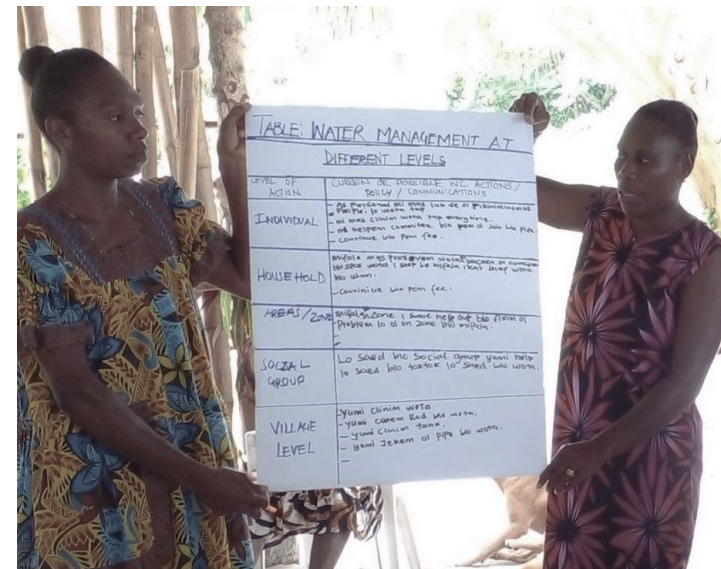 TABLE: WATER MANAGEMENT AT
DIFFERENT LEVELS
LEVEL OF
ACTION
CURREN OR POSSIBLE WC ACTIONS/
POLICY / COMMUNICATIONS
INDIVIDUAL
- As personal mi mas luk se ol pikinini no mas
plei lo wata tap
- mi mas clinim wota tap everytime.
- mi helpem commitee blo pem ol Join blo pipe.
- continue blo pem fee.
HOUSEHOLD
Mifala mas wota
wota i stap be mifala i wota
blo usim.
- Continue blo pem fee.
AREAS/ZONE
- Mifala Zone i save help out blo fixim ol
problem lo ol on zone blo mifala.
-
-
SOCIAL
GROUP
Lo saed blo Social group yumi help
lo saed blo toktok lo saed blo wota.
VILLAGE
LEVEL
- Yumi clinim wota
- Yumi Rod blo wota.
- Yumi clinim tank.
- Yumi Jekem ol pipe blo wota.
-